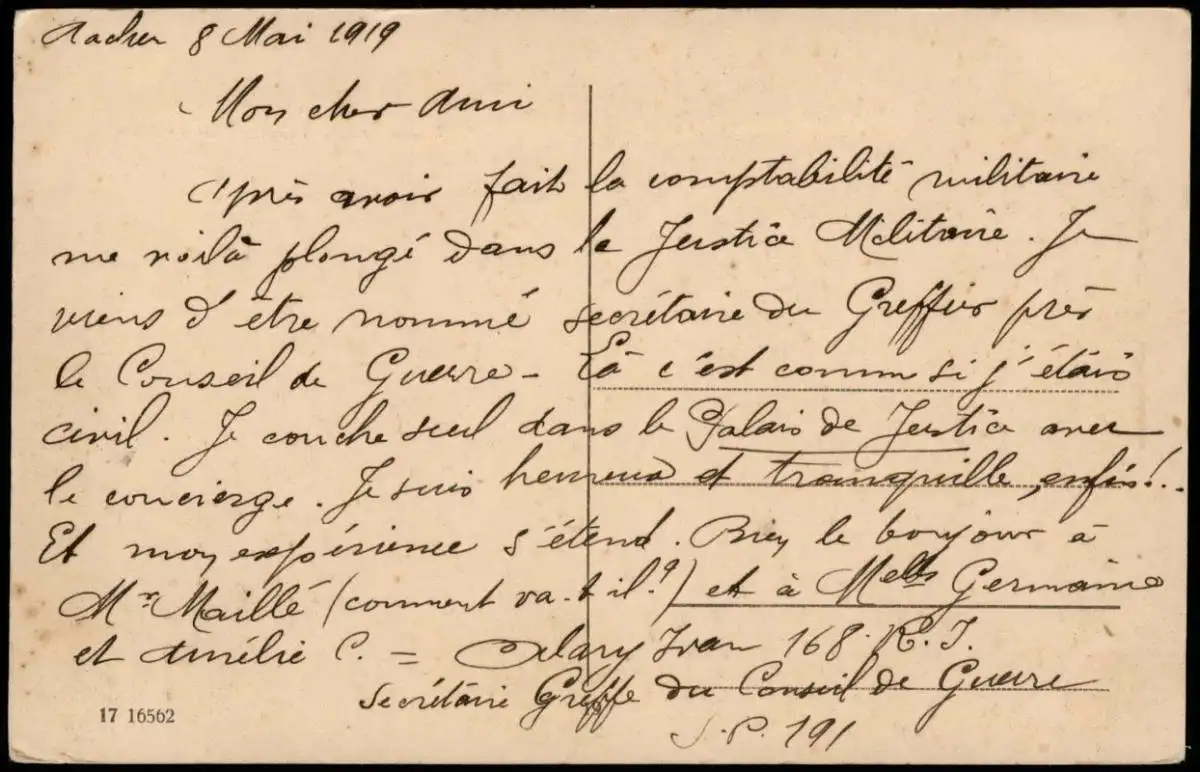 Aachen 8 Mai 1919
Mon cher Ami
Après avoir fait la comptabilité militaire
me voilà plongé dans la Justice Militaire. Je
viens d'être nommé secrétaire du Greffier près
le Conseil de Guerre - Là c'est comme si j'étais
civil. Je couche seul dans le Palais de Justice avec
le concierge. Je suis heureux et tranquille, enfin!..
Et mon expérience s'étend. Bien le bonjour à
Mr Maillé (comment va-t-il?) et à Melles Germaine
et Amélie C. = Alary Ivan 168. R. I.
Secrétaire Greffe du Conseil de Guerre
S.P. 191
17 16562